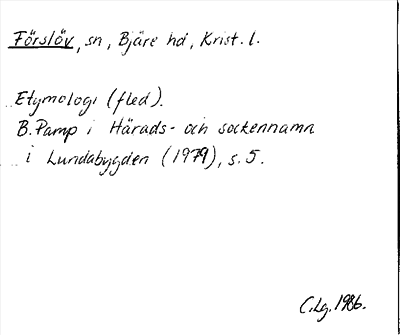 Förslöv, sn, Bjäre hd, Krist. l.
Etymologi (fled).
B. Pamp i Härads- och sockennamn
i Lundabygden (1979), s. 5.
C. Lg. 1986.